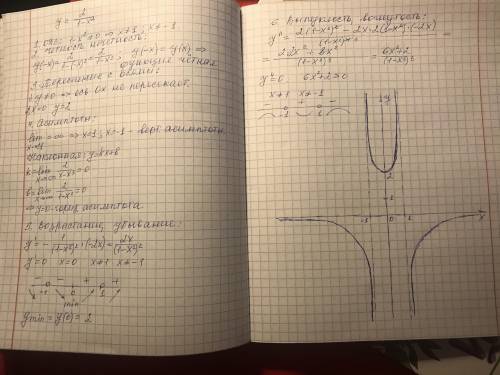 y = 2/(1-x²)
1. ОПФ: 1-x²≠0 ⇒ x≠1; x≠-1
2. Четность нечетность:
y(-x) = 2/(1-(-x)²) = 2/(1-x²); y(-x) = y(x) ⇒ функция четная
3. Пересечение с осями:
y≠0 ⇒ ось Ox не пересекает.
x=0 y=2
4. Асимптоты:
lim = ∞ ⇒ x=1; x=-1 - верт. асимптоты
x→±1
Наклонная: y=kx+b
k = lim 2/(x-x³) = 0
b = lim 2/(1-x²) = 0
⇒ y=0 - гориз. асимптота.
5. Возрастание, убывание:
y' = - /(1-x²)² · (-2x) = 2x/(1-x²)²
y'=0 x=0 x≠1 x≠-1
- - + +
-1 0 1
min
ymin = y(0) = 2
6. Выпуклость, вогнутость:
y'' = (2(1-x²)² - 2x·2(1-x²)·(-2x))/(1-x²)⁴ =
= (2-2x²+8x²)/(1-x²)³ = (6x²+2)/(1-x²)³
y''=0 6x²+2=0
x≠1 x≠-1
- + -
-1 1
y
2
-1 0 1 x